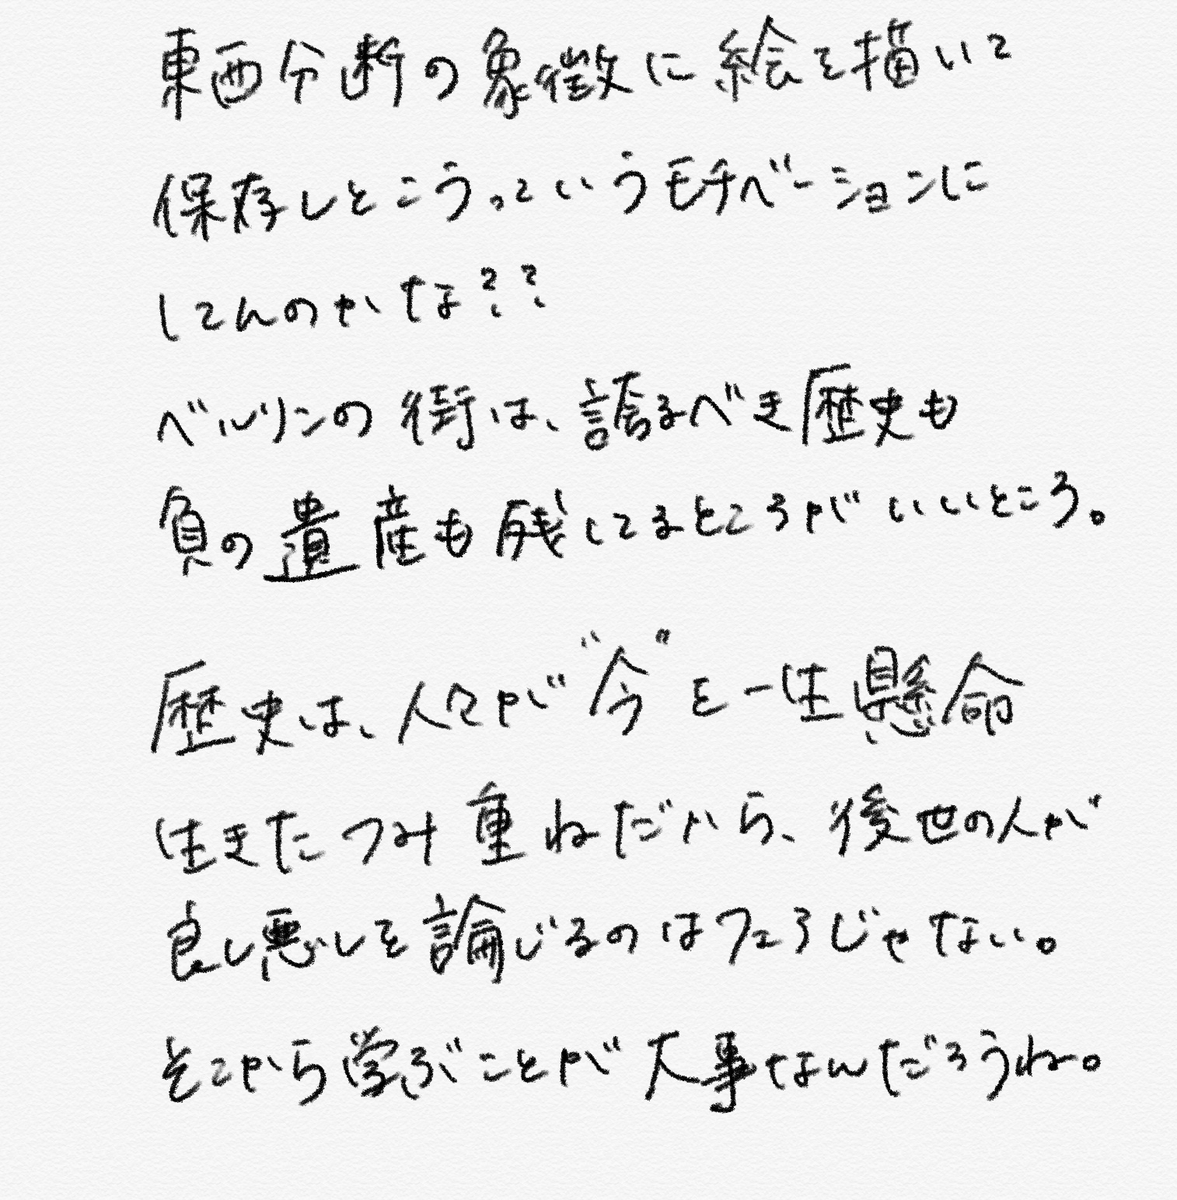 東西分断の象徴に絵を描いて
保存しとこうっていうモチベーションに
してんのかな??
ベルリンの街は、誇るべき歴史も
負の遺産も残してるところがいいところ。
歴史は、人々が"今"を一生懸命
生きたつみ重ねだから、後世の人が
良し悪しを論じるのはフェアじゃない。
そこから学ぶことが大事なんだろうね。